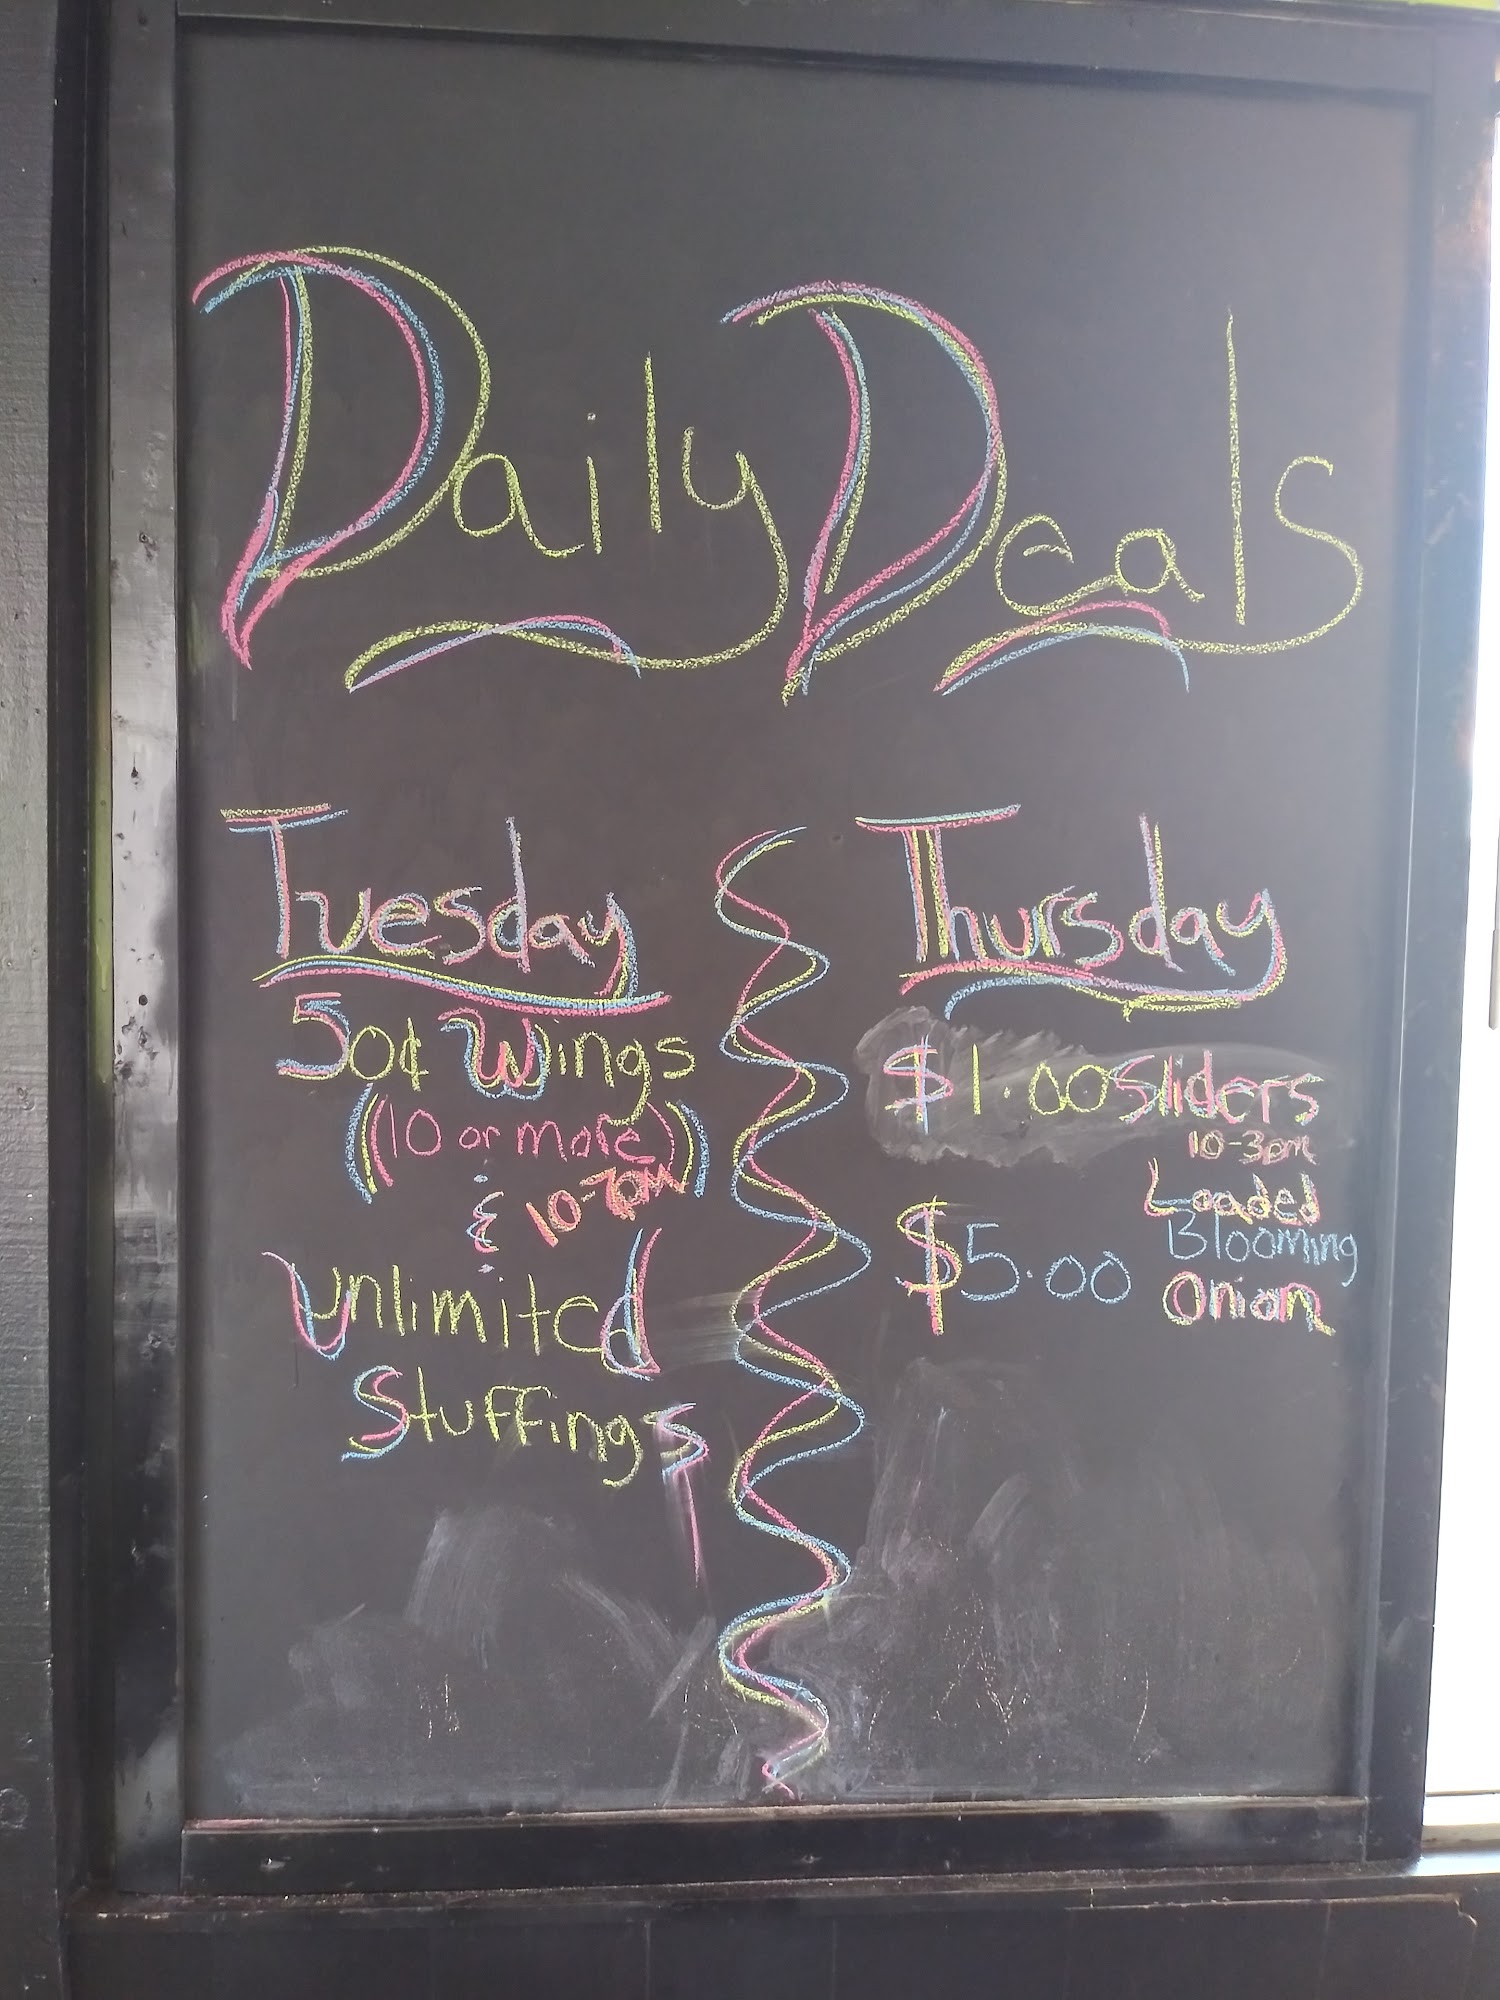 Daily Deals
Tuesday
50¢ Wings
(10 or more)
& 10-7pm
Unlimited
Stuffings
Thursday
$1.00 Sliders
10-3pm
Loaded
$5.00 Blooming
Onion